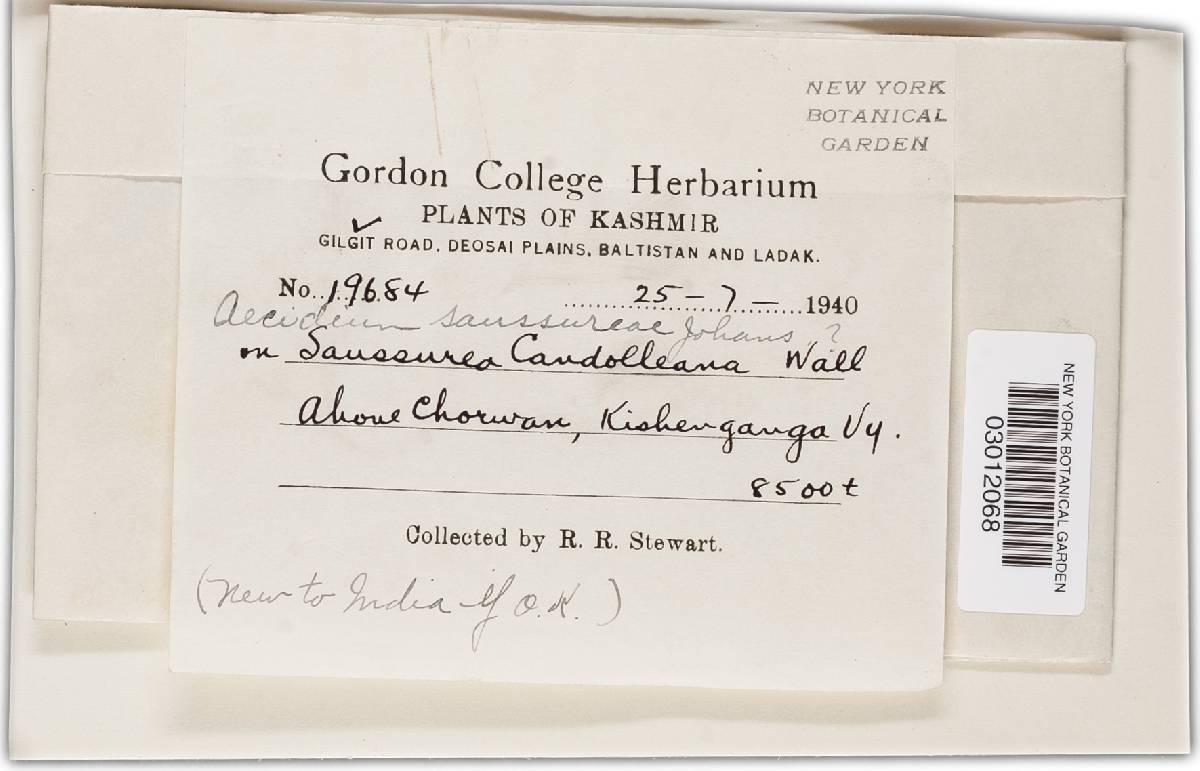 NEW YORK
BOTANICAL
GARDEN
Gordon College Herbarium
PLANTS OF KASHMIR
✓
GILGIT ROAD, DEOSAI PLAINS, BALTISTAN AND LADAK.
No. 19684 25 - 7 - 1940
Aecidium saussureae Johans ?
on Saussurea Candolleana Wall
Above Chorwan, Kishenganga Vy.
8500±
Collected by R. R. Stewart.
(New to India if O.K.)
NEW YORK BOTANICAL GARDEN
03012068